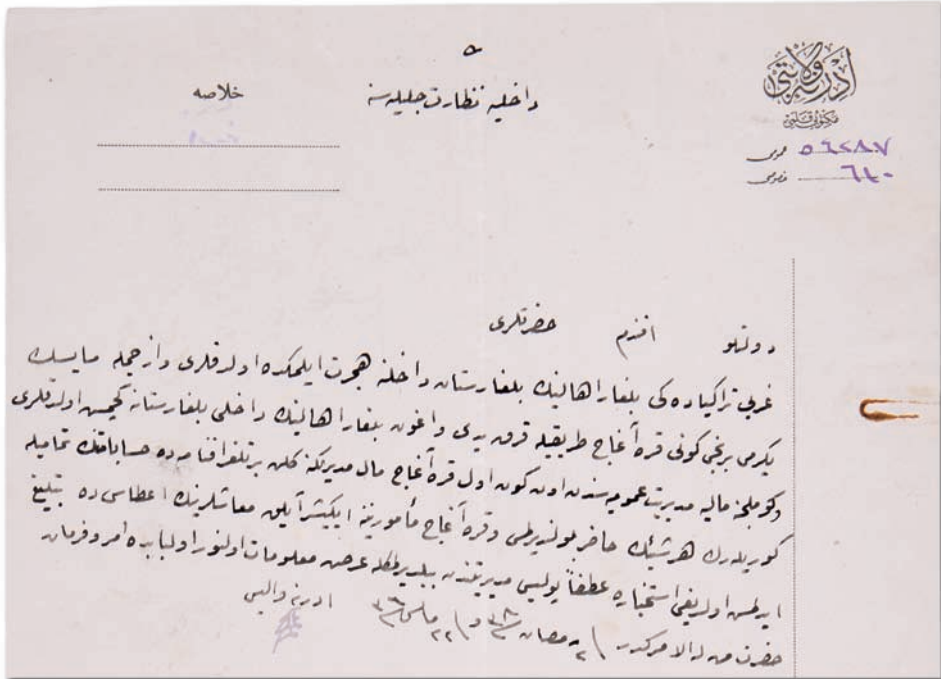 ادرنه ولايتى
مكتوبى قلمى
عمومى ٥٦٢٨٧
خصوصى ٦٤٠
داخليه نظارت جليله سنه
خلاصه
دولتلو افندم حضرتلرى
غربى تراكياده كى بلغار اهالينك بلغارستان داخلنه هجرت ايلمكده اولدقلرى و از جمله مايسك
يكرمى برنجى كونى قره آغاج طريقيله قرق يدى واغون بلغار اهالينك داخلى بلغارستانه كچمش اولدقلرى
و كوملجنه ماليه مديريت عموميه سندن اون كون اول قره آغاج مال مديرينه كلن بر تلغرافنامه ده حساباتك تماميله
كوريله رك هر شيئك حاضر بولنديرلمسى و قره آغاج مأمورينه ايكيشر آيلق معاشلرينك اعطاسى ده تبليغ
ايدلمش اولديغى استخباره عطفاً پوليس مديريتندن بيلديرلمكله عرض معلومات اولنور اولبابده امر و فرمان
حضرت من له الامركدر ٢ رمضان ٣٨ و ٢٢ مايس ٣٦
ادرنه واليسى